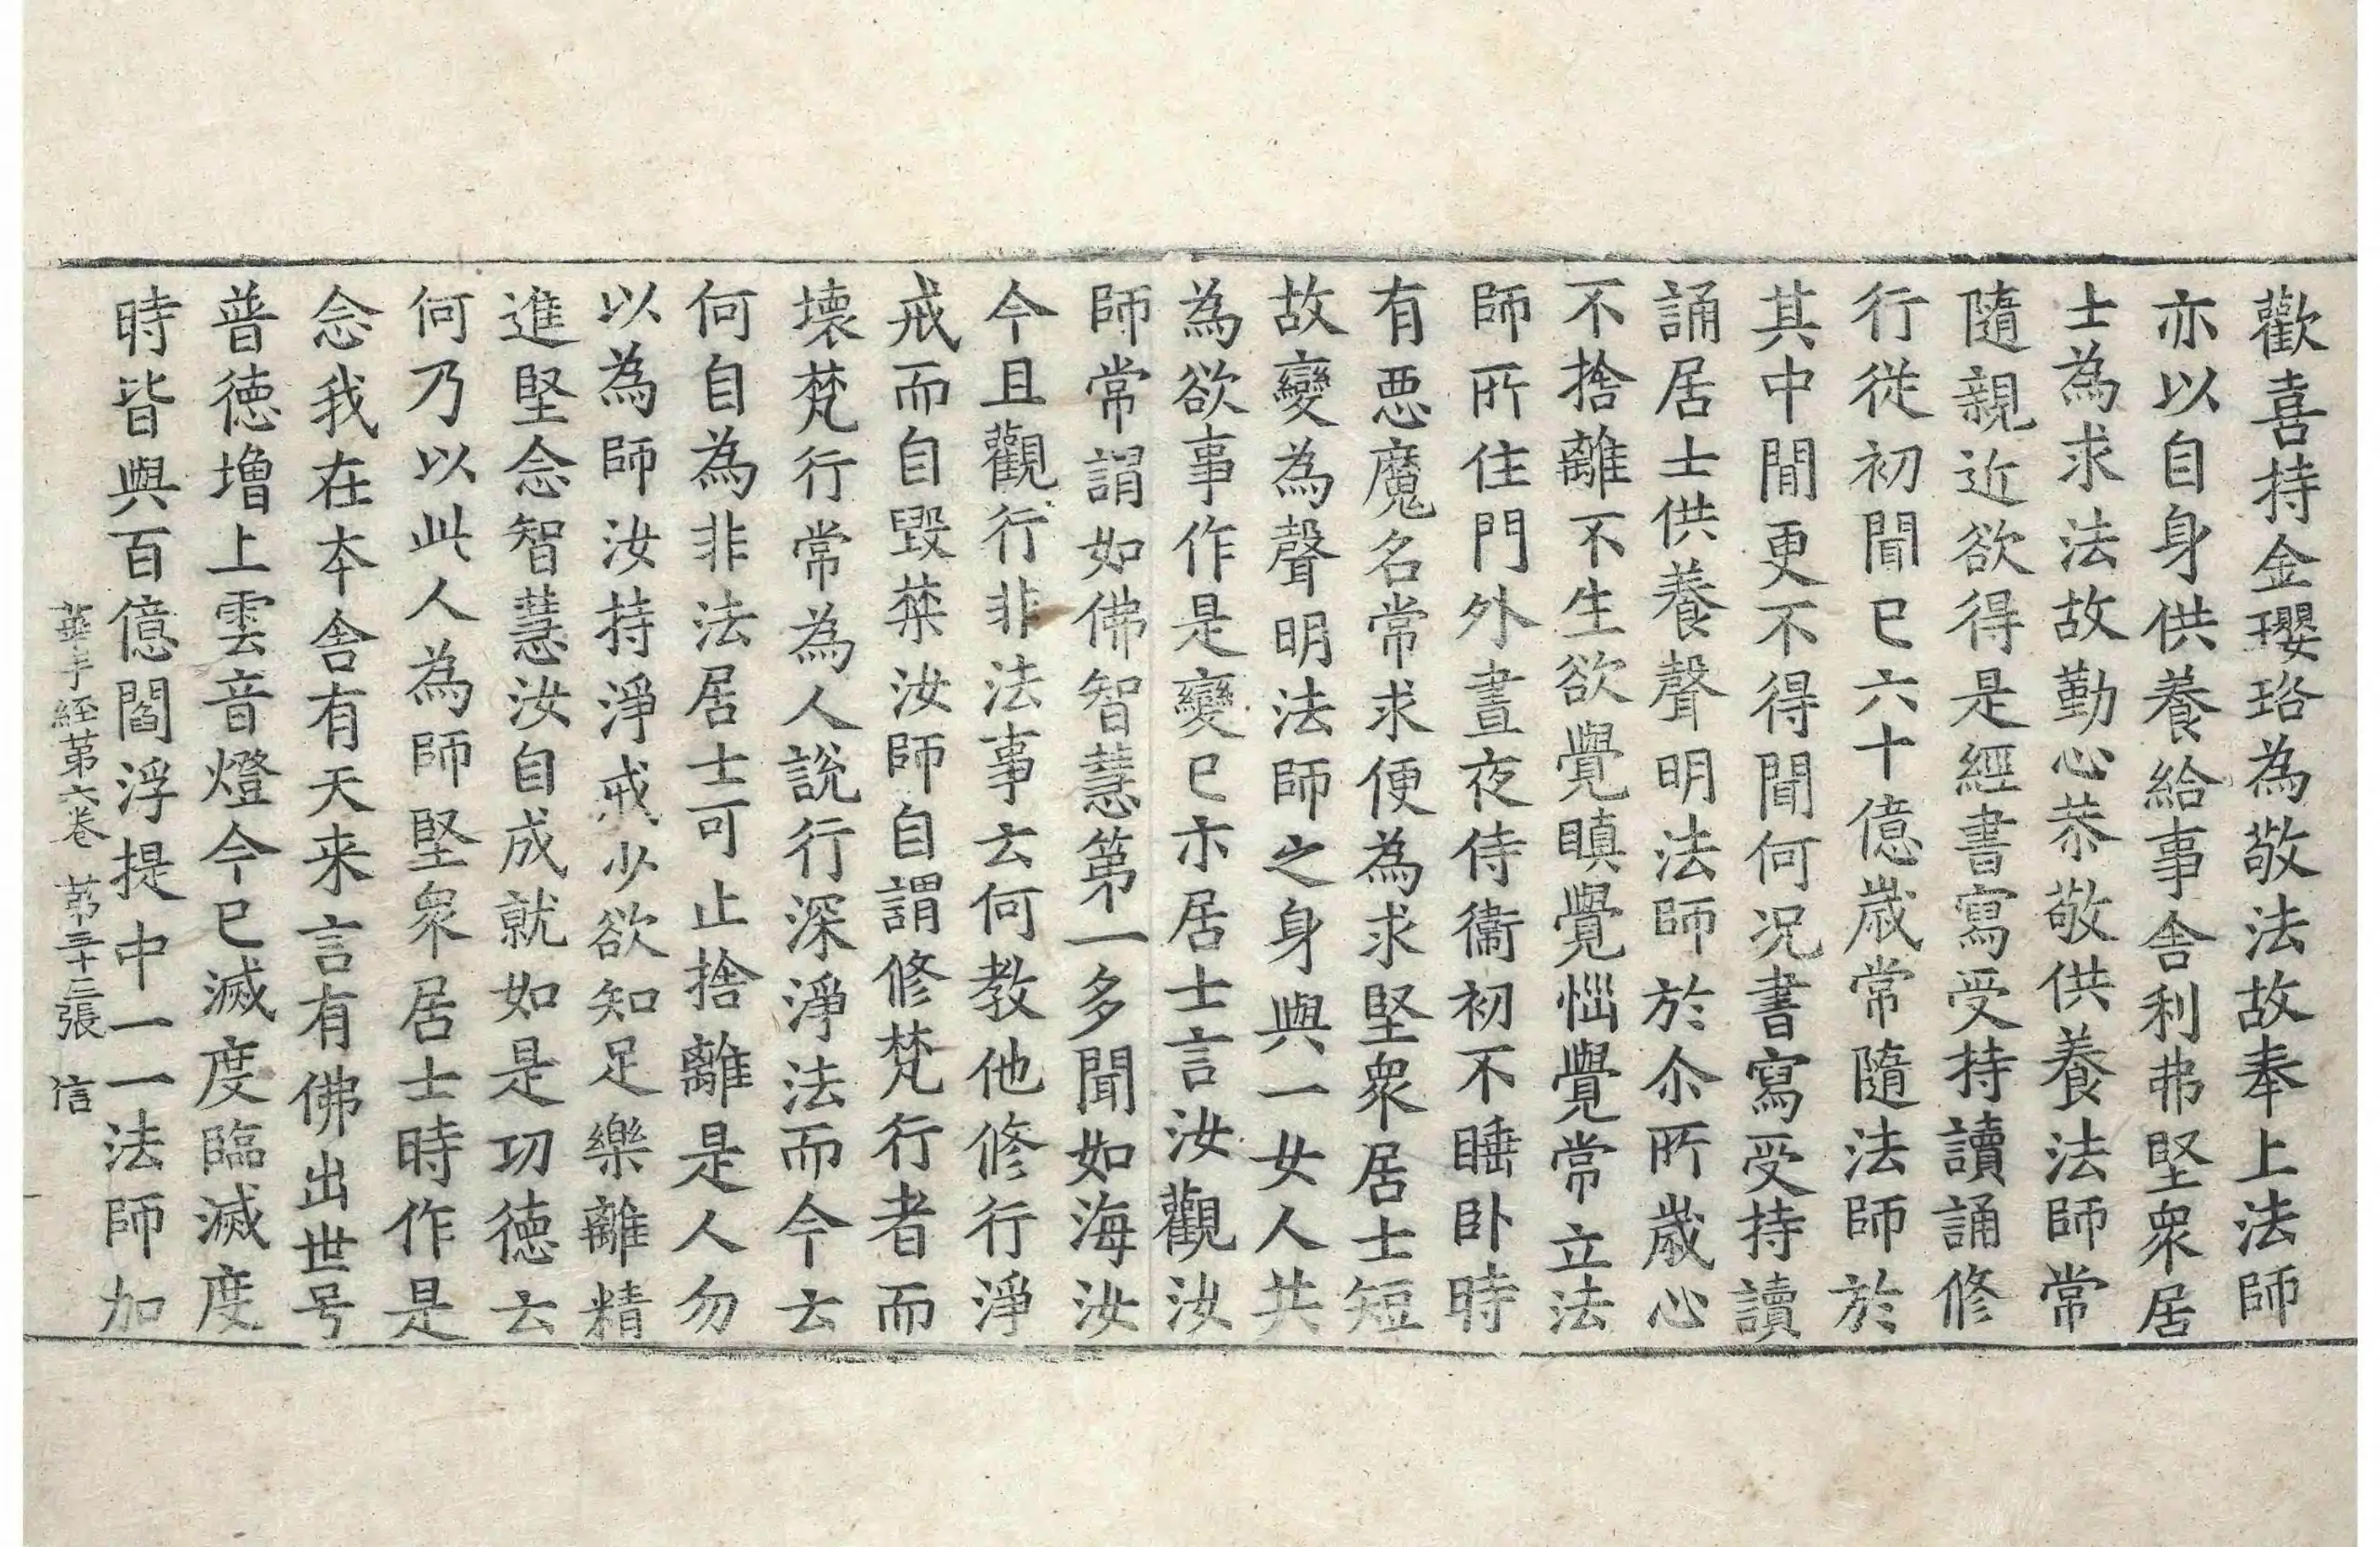 歡喜持金瓔珞為敬法故奉上法師
亦以自身供養給事舍利弗堅衆居
士為求法故勤心恭敬供養法師常
隨親近欲得是經書寫受持讀誦修
行從初聞已六十億歲常隨法師於
其中間更不得聞何况書寫受持讀
誦居士供養聲明法師於尒所歲心
不捨離不生欲覺瞋覺惱覺常立法
師所住門外晝夜侍衞初不睡卧時
有惡魔名常求便為求堅衆居士短
故變為聲明法師之身與一女人共
為欲事作是變已示居士言汝觀汝
師常謂如佛智慧第一多聞如海汝
今且觀行非法事云何教他修行淨
戒而自毀禁汝師自謂修梵行者而
壞梵行常為人說行深淨法而今云
何自為非法居士可止捨離是人勿
以為師汝持淨戒少欲知足樂離精
進堅念智慧汝自成就如是功德云
何乃以此人為師堅衆居士時作是
念我在本舍有天来言有佛出世号
普德增上雲音燈今已滅度臨滅度
時皆與百億閻浮提中一一法師加
華手經第六卷　第三十三張　信